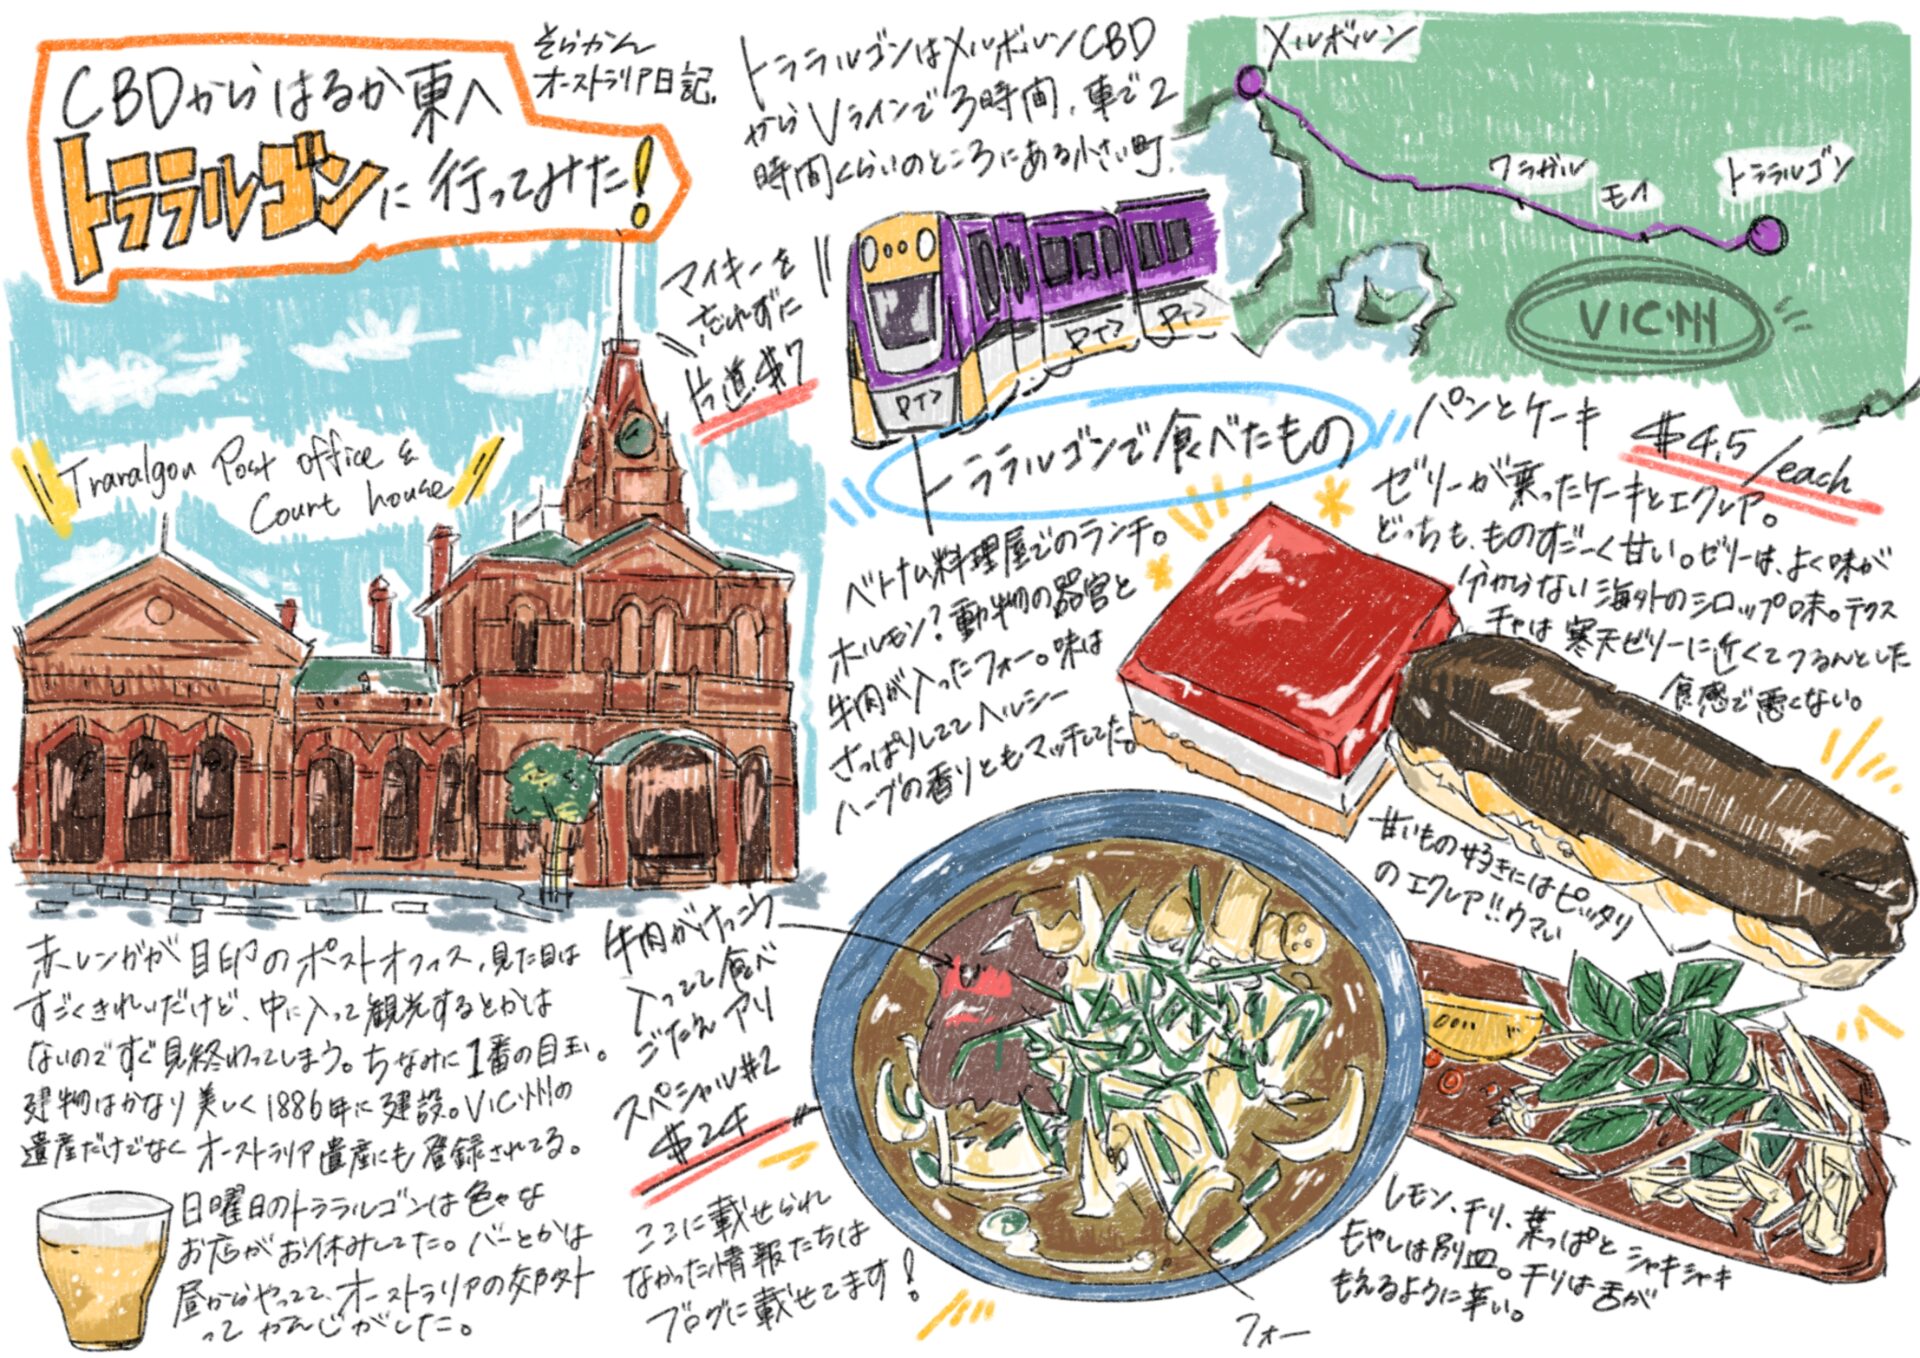 CBDからはるか東へ
トララルゴンに行ってみた!
そらかん
オーストラリア日記.
トララルゴンはメルボルンCBD
からVラインで3時間、車で2
時間くらいのところにある小さい町.
メルボルン
ワラガル
モイ
トララルゴン
VIC州
マイキーを
忘れずに
片道$7
PTV
PTV
PTV
Traralgon Post office &
Court house
赤レンガが目印のポストオフィス、見た目は
すごくきれいだけど、中に入って観光するとかは
ないのですぐ見終わってしまう。ちなみに1番の目玉。
建物はかなり美しく1886年に建設。VIC州の
遺産だけでなくオーストラリア遺産にも登録されてる。
日曜日のトララルゴンは色々な
お店がお休みしてた。バーとかは
昼からやってて、オーストラリアの郊外
って かんじがした。
トララルゴンで食べたもの
ベトナム料理屋でのランチ。
ホルモン?動物の器官と
牛肉が入ったフォー。味は
さっぱりしててヘルシー
ハーブの香りともマッチしてた。
牛肉がけっこう
入ってて食べ
ごたえアリ
スペシャル#2
$24
ここに載せられ
なかった情報たちは
ブログに載せてます!
フォー
パンとケーキ
$4.5/each
ゼリーが乗ったケーキとエクレア。
どっちも、ものすごーく甘い。ゼリーは、よく味が
分からない海外のシロップ味。テクス
チャは寒天ゼリーに近くてつるんとした
食感で悪くない。
甘いもの好きにはピッタリ
のエクレア!!ウマい
レモン、チリ、葉っぱとシャキシャキ
もやしは別皿。チリは舌が
もえるように辛い。